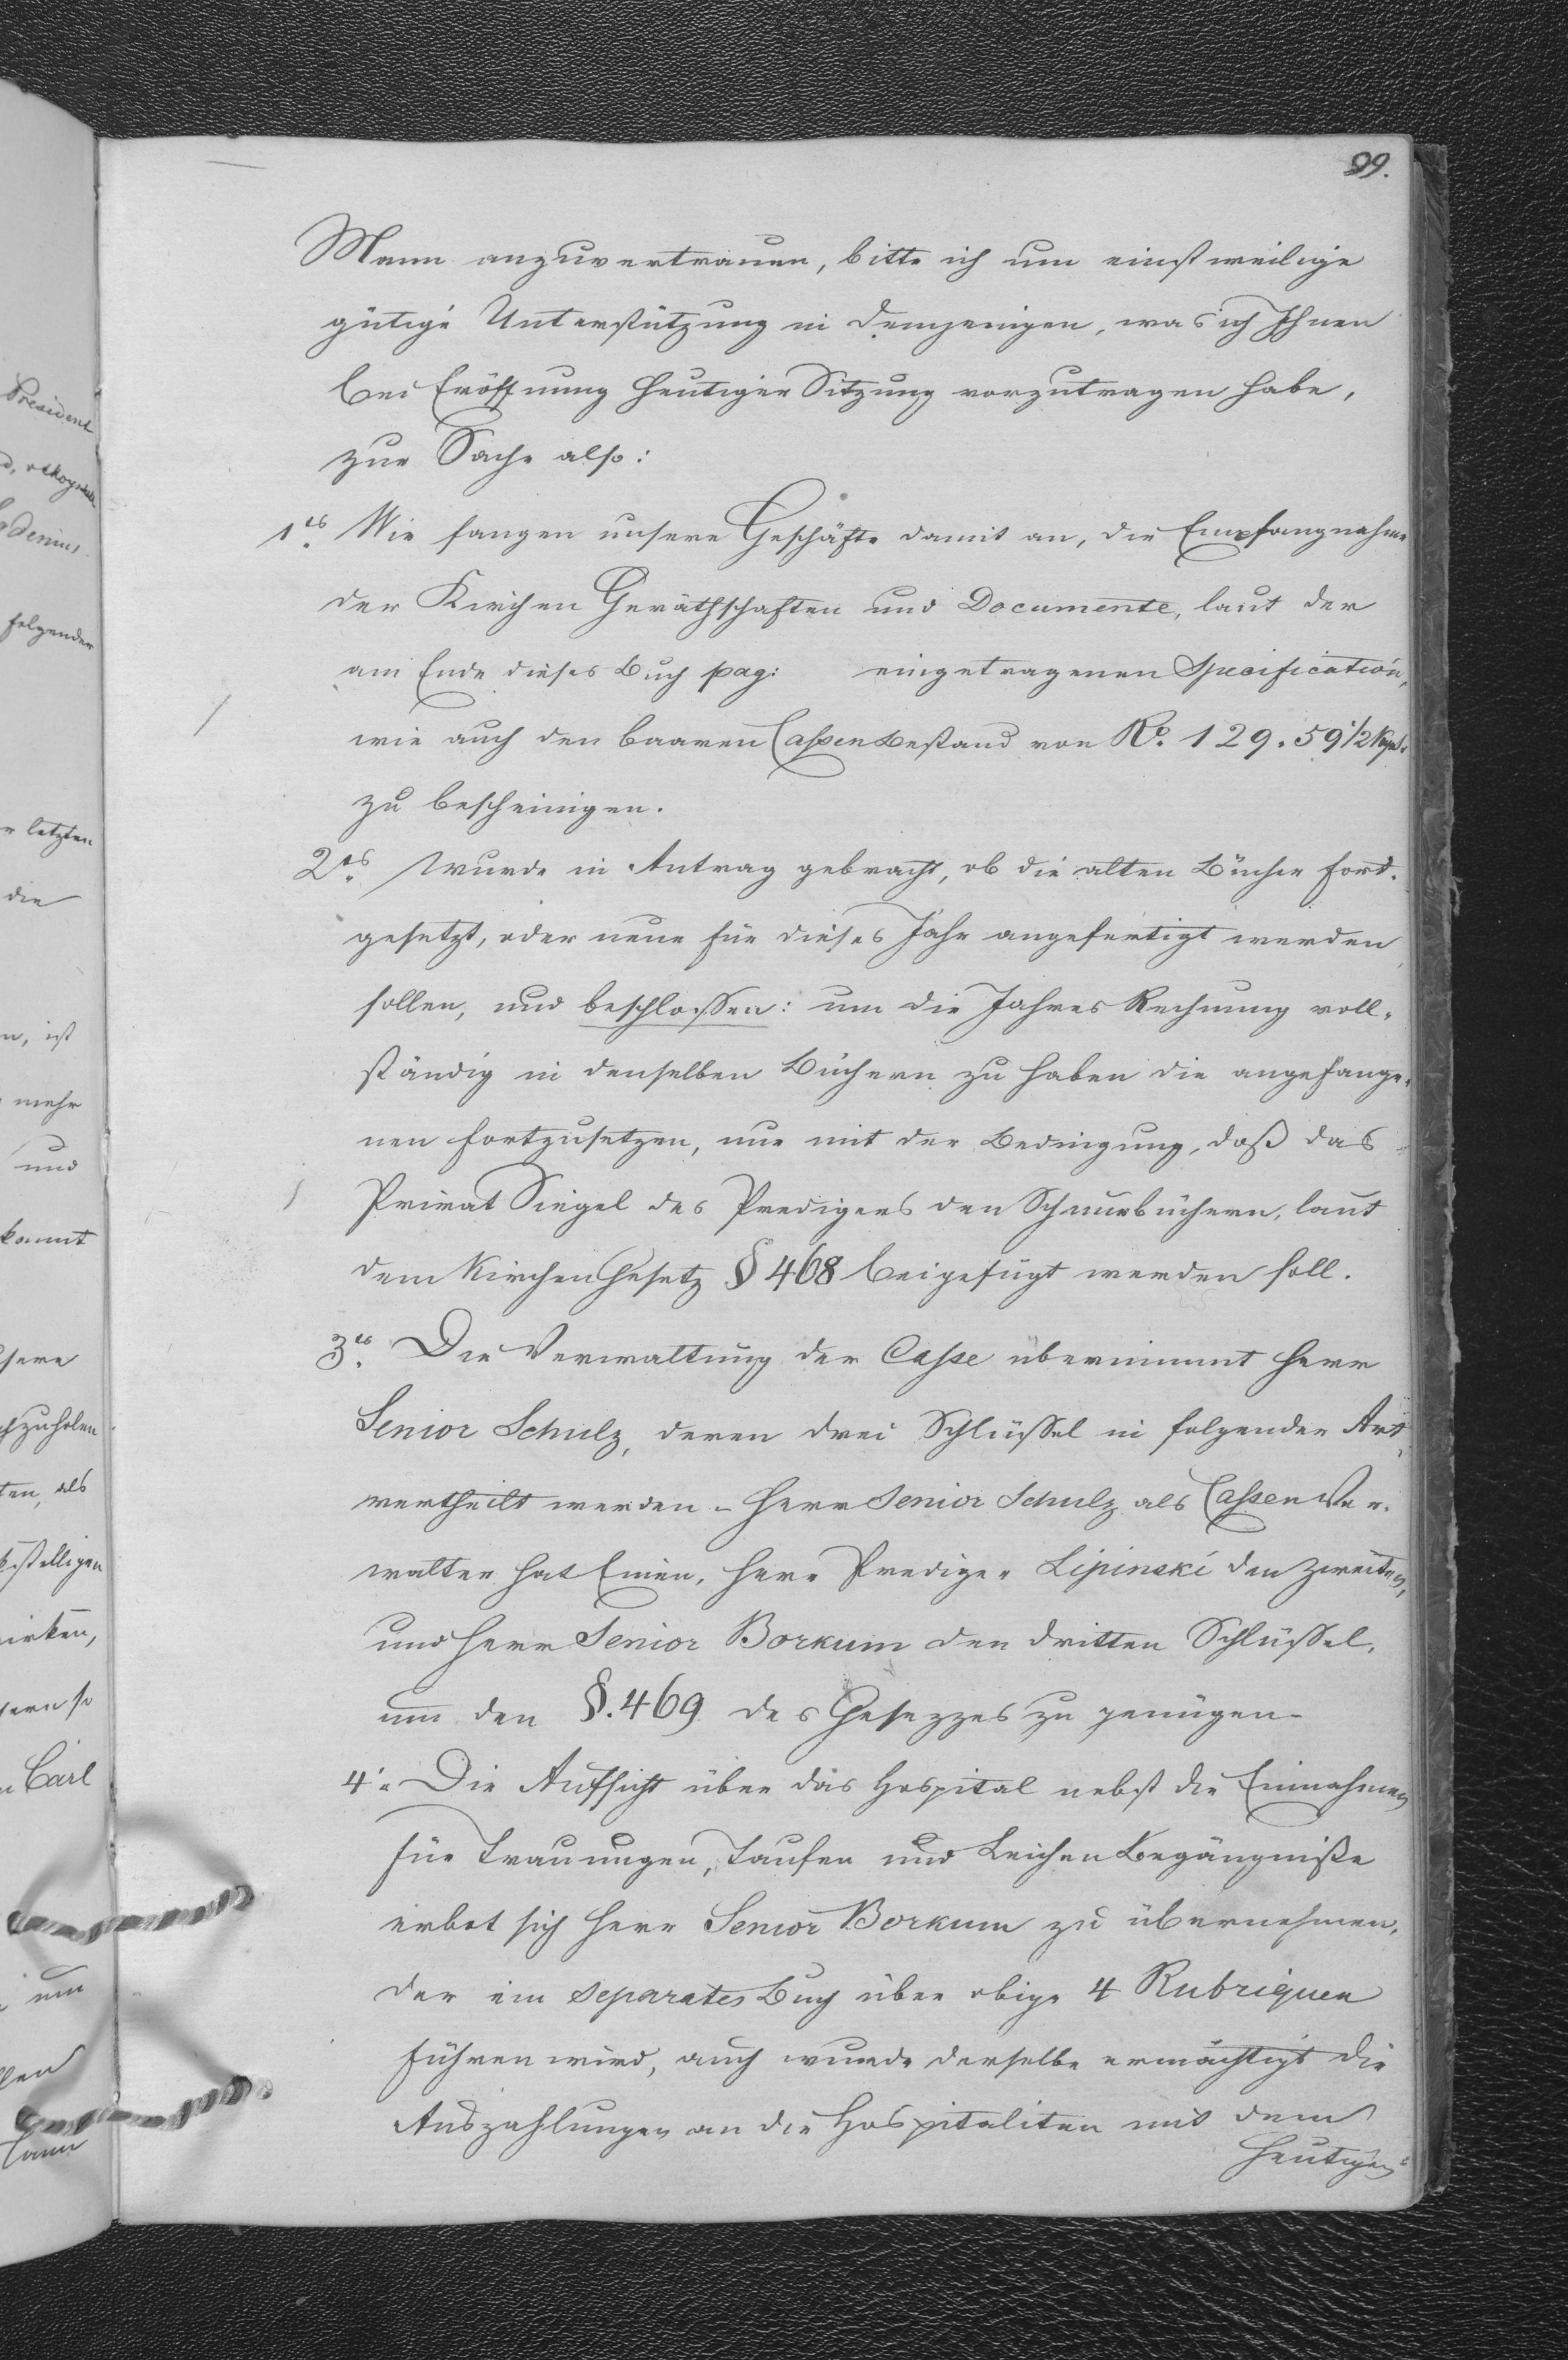 99.
Mann anzuvertrauen, bitte ich um einstweilige
gütige Unterstützung in demjenigen, was ich Ihnen
bei Eröffnung heutiger Sitzung vorzutragen habe,
zur Sache also:
1tes Wir fangen unsere Geschäfte damit an, die Empfangnahme
der Kirchen Geräthschaften und Documente, laut der
am Ende dieses Buch pag: eingetragenen Specification,
wie auch den baaren Cassenbestand von Ro. 129. 59 1/2 Kop.
zu bescheinigen.
2tes Wurde in Antrag gebracht, ob die alten Bücher fort-
gesetzt, oder neue für dieses Jahr angefertigt werden
sollen, und beschlossen: um die Jahres Rechnung voll-
ständig in denselben Büchern zu haben die angefange-
nen fortzusetzen, nur mit der Bedingung, daß das
Privat Siegel des Predigers den Schnurbüchern, laut
dem Kirchen Gesetz § 468 beigefügt werden soll.
3tes Die Verwaltung der Casse übernimmt Herr
Senior Schulz, deren drei Schlüssel in folgender Art
vertheilt werden - Herr Senior Schulz als Cassen Ver-
walter hat Einen, Herr Prediger Lipinski den zweiten,
und Herr Senior Borkum den dritten Schlüssel,
um den §. 469 des Gesezzes zu genügen -
4. Die Aufsicht über das Hospital nebst die Einnahmen
für Trauungen, Taufen und Leichen Begängniße
erbot sich Herr Senior Borkum zu übernehmen,
der ein separates Buch über obige 4 Rubriquen
führen wird, auch wurde derselbe ermächtigt die
Auszahlungen an die Hospitaliten mit dem
heutigen
President
folgender
letzten
die
ist
mehr
und
kommt
als
Carl
um